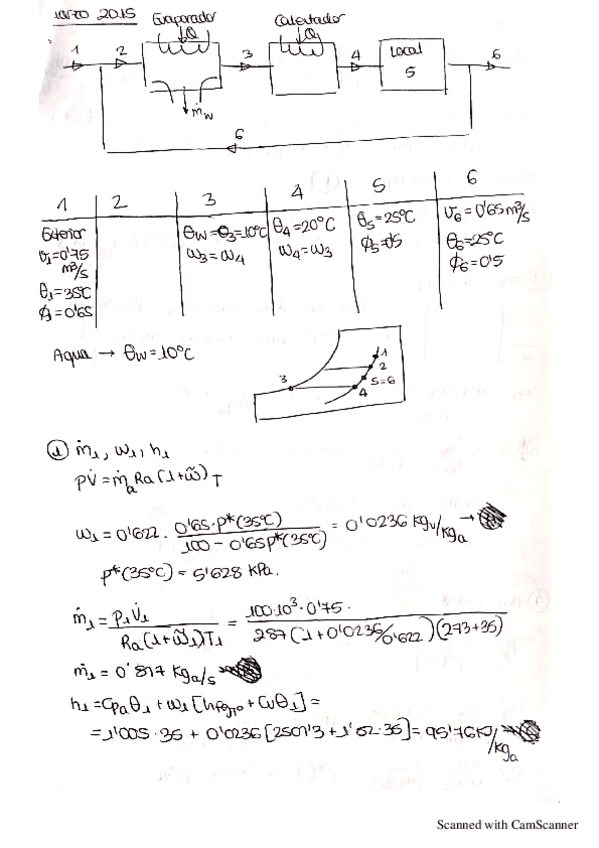 2015
Evaporador Calentador
Q Q
1 2 3 4 Local 6
5
ṁw
6
1 2 3 4 5 6
Exterior
v̇1=0'75 m³/s
θ1=35ºC
ϕ1=0'65
θw=θ3=10ºC
ω3=ω4
θ4=20ºC
ω4=ω3
θ5=25ºC
ϕ5=0'5
v̇6=0'65 m³/s
θ6=25ºC
ϕ6=0'5
Agua → θw=10ºC
1
2
3 5=6
4
① ṁ1, ω1, h1
pV̇=ṁa Ra(1+ω̃)T
ω1=0'622 · 0'65·p*(35ºC) / 100 - 0'65p*(35ºC) = 0'0236 kgv/kga →
p*(35ºC) = 5'628 kPa.
ṁ1 = p1V̇1 / Ra(1+ω̃1)T1 = 100·10³·0'75· / 287(1+0'0236/0'622)(273+35)
ṁ1 = 0'817 kga/s
h1=Cpaθ1+ω1[hfgº+Cvθ1]=
=1'005·35 + 0'0236[2501'3+1'82·35]=95'76KJ/kga
Scanned with CamScanner